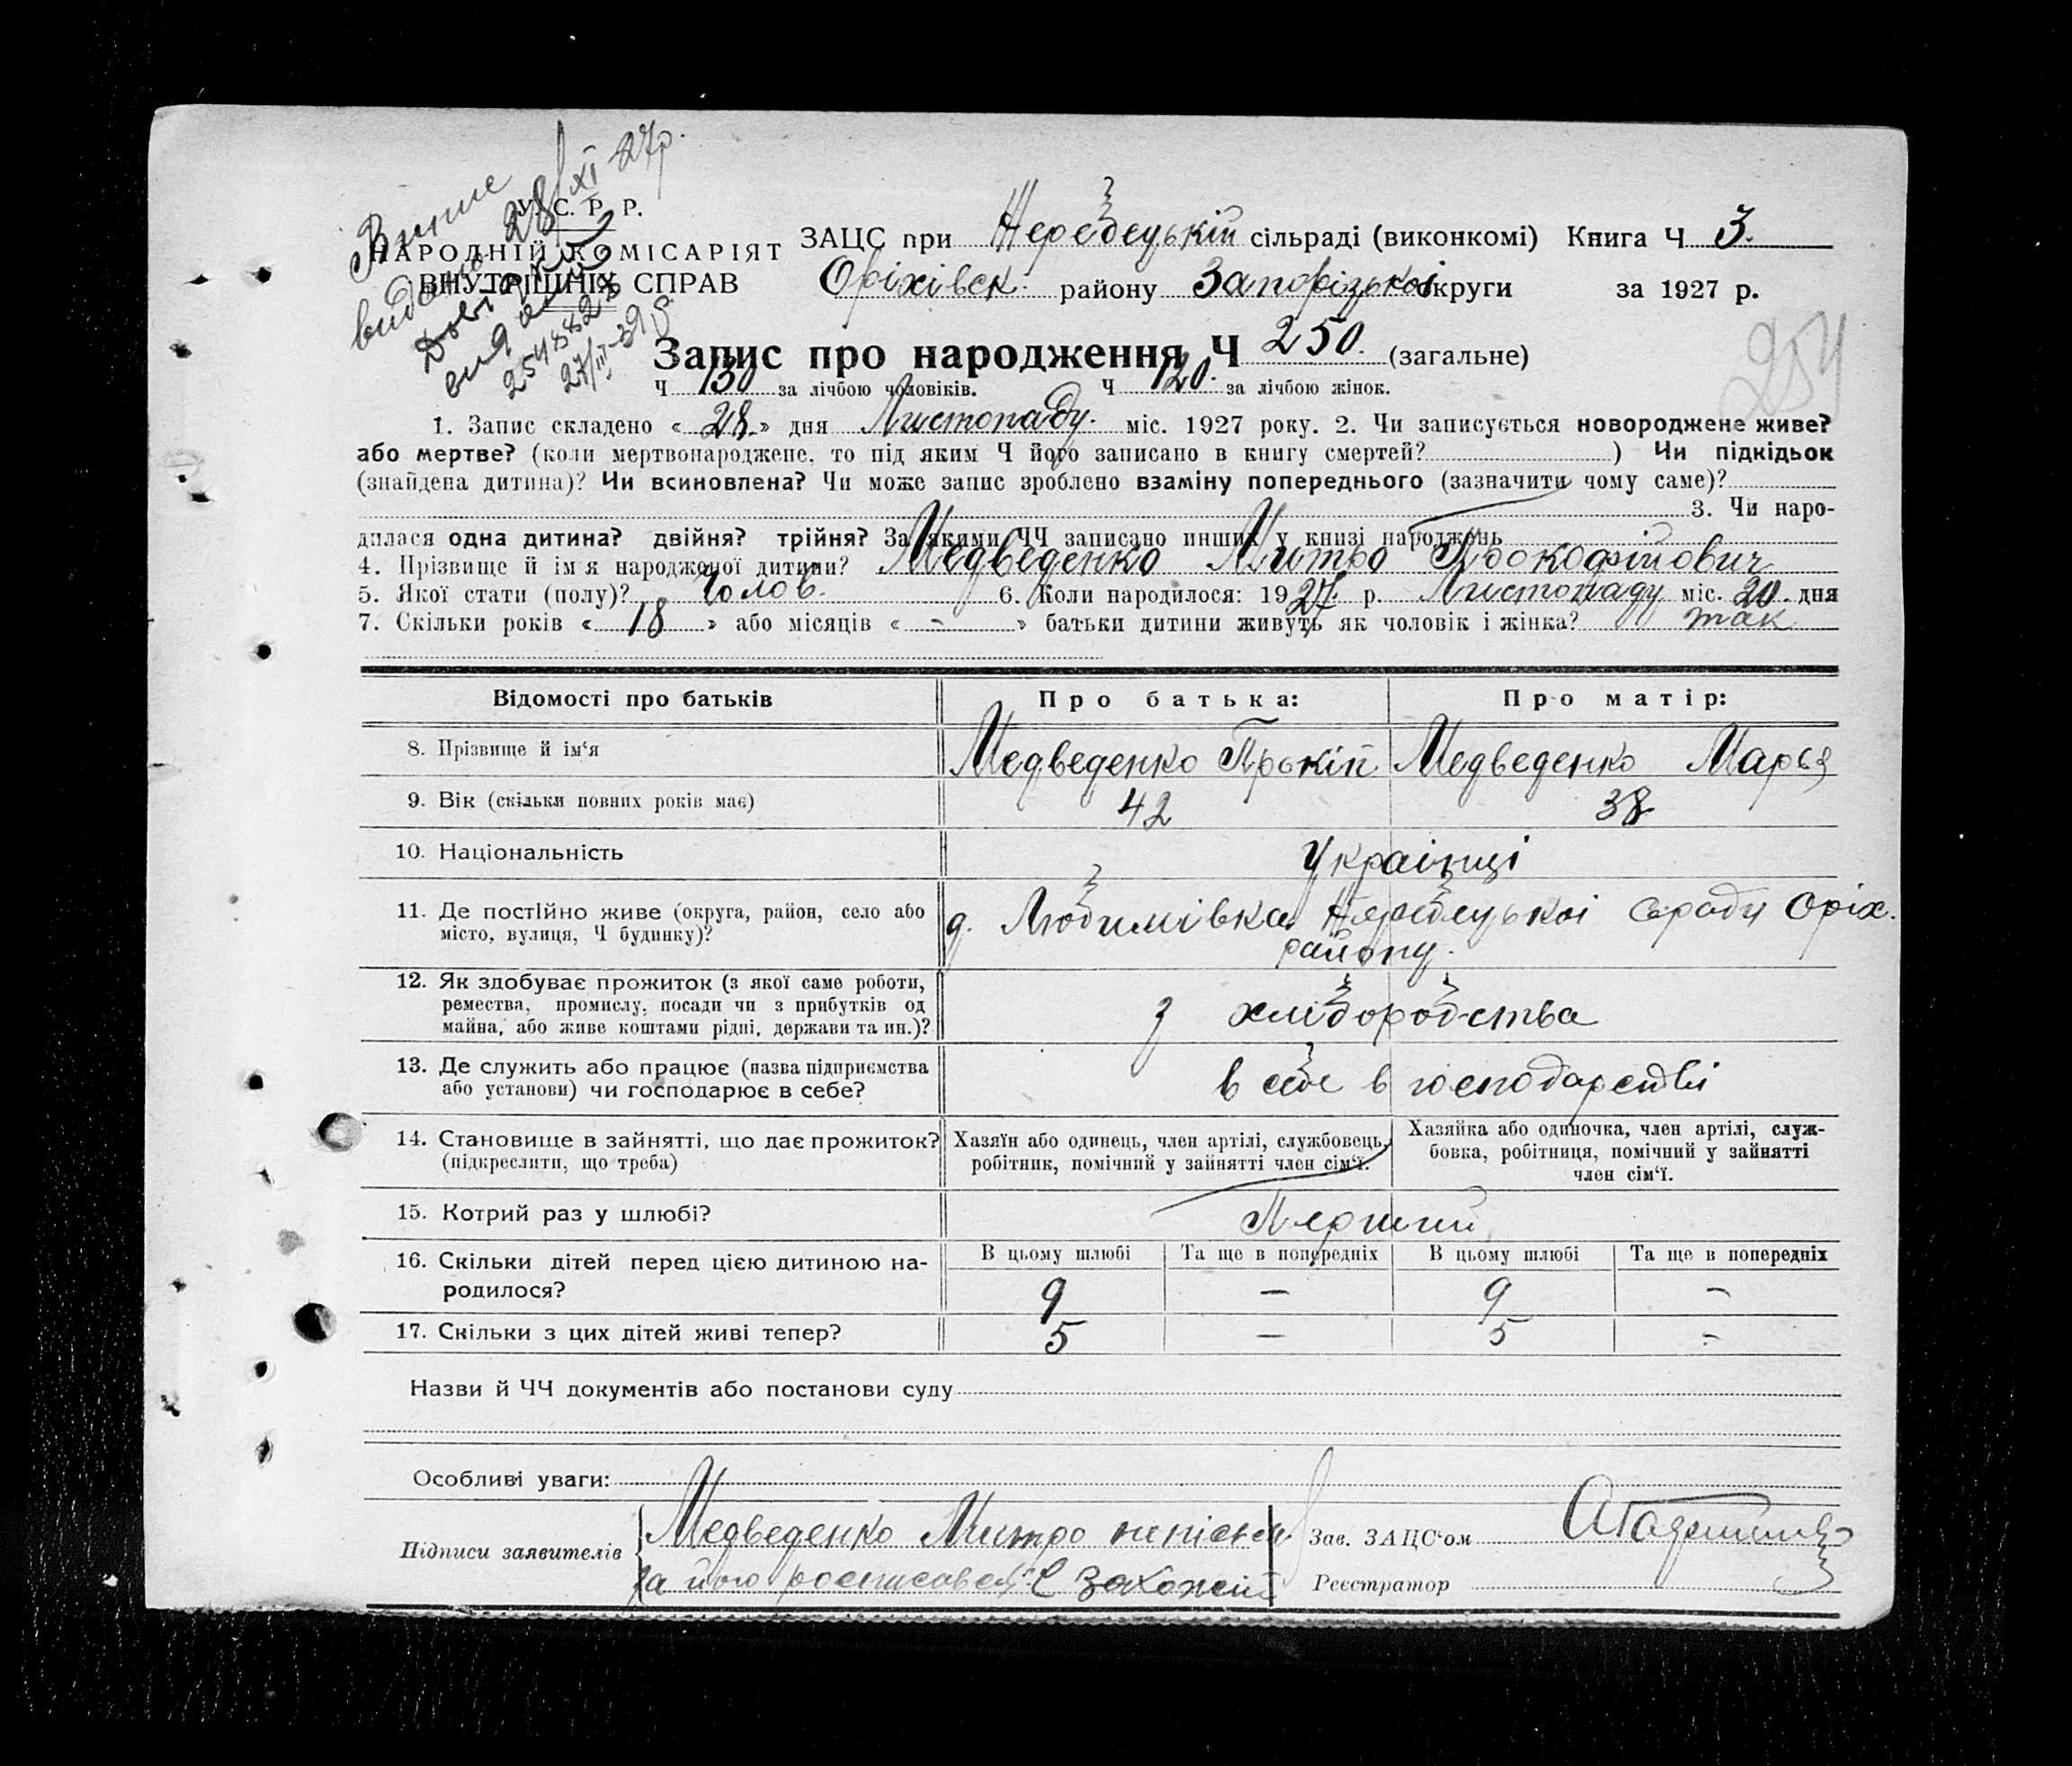 Випис
видано
28/XI 27р.
У. С. Р. Р.
НАРОДНІЙ КОМІСАРІЯТ
ВНУТРІШНІХ СПРАВ
27/III-39р.
ЗАЦС при Жеребецькій сільраді (виконкомі) Книга Ч 3.
Оріхівськ. району Запорізької округи за 1927 р.
254
Запис про народження Ч 250. (загальне)
Ч 130 за лічбою чоловіків. Ч 120. за лічбою жінок.
1. Запис складено «28.» дня Листопаду. міс. 1927 року. 2. Чи записується новороджене живе?
або мертве? (коли мертвонароджене, то під яким Ч його записано в книгу смертей? ) Чи підкідьок
(знайдена дитина)? Чи всиновлена? Чи може запис зроблено взаміну попереднього (зазначити чому саме)?
3. Чи наро-
дилася одна дитина? двійня? трійня? За якими ЧЧ записано инших у книзі народжень
4. Прізвище й ім'я народженої дитини? Медведенко Митро Прокофійович
5. Якої стати (полу)? Чолов. 6. Коли народилося: 1927. р. Листопаду міс. 20. дня
7. Скільки років «18» або місяців «-» батьки дитини живуть як чоловік і жінка? так
Відомості про батьків Про батька: Про матір:
8. Прізвище й ім'я Медведенко Прькіп Медведенко Марья
9. Вік (скільки повних років має) 42 38
10. Національність Українці
11. Де постійно живе (округа, район, село або
місто, вулиця, Ч будинку)? д. Любимівка Жеребецької с/ради Оріх.
району.
12. Як здобуває прожиток (з якої саме роботи,
ремества, промислу, посади чи з прибутків од
майна, або живе коштами рідні, держави та ин.)? з хліборобства
13. Де служить або працює (назва підприємства
або установи) чи господарює в себе? в себе в господарстві
14. Становище в зайнятті, що дає прожиток?
(підкреслити, що треба)
Хазяїн або одинець, член артілі, службовець,
робітник, помічний у зайнятті член сім'ї.
Хазяйка або одиночка, член артілі, служ-
бовка, робітниця, помічний у зайнятті
член сім'ї.
15. Котрий раз у шлюбі? Перший
16. Скільки дітей перед цією дитиною на-
родилося?
В цьому шлюбі Та ще в попередніх В цьому шлюбі Та ще в попередніх
9 – 9 –
17. Скільки з цих дітей живі тепер? 5 – 5 –
Назви й ЧЧ документів або постанови суду
Особливі уваги:
Підписи заявителів Медведенко Митро
за його росписався С
Зав. ЗАЦС'ом
Реєстратор